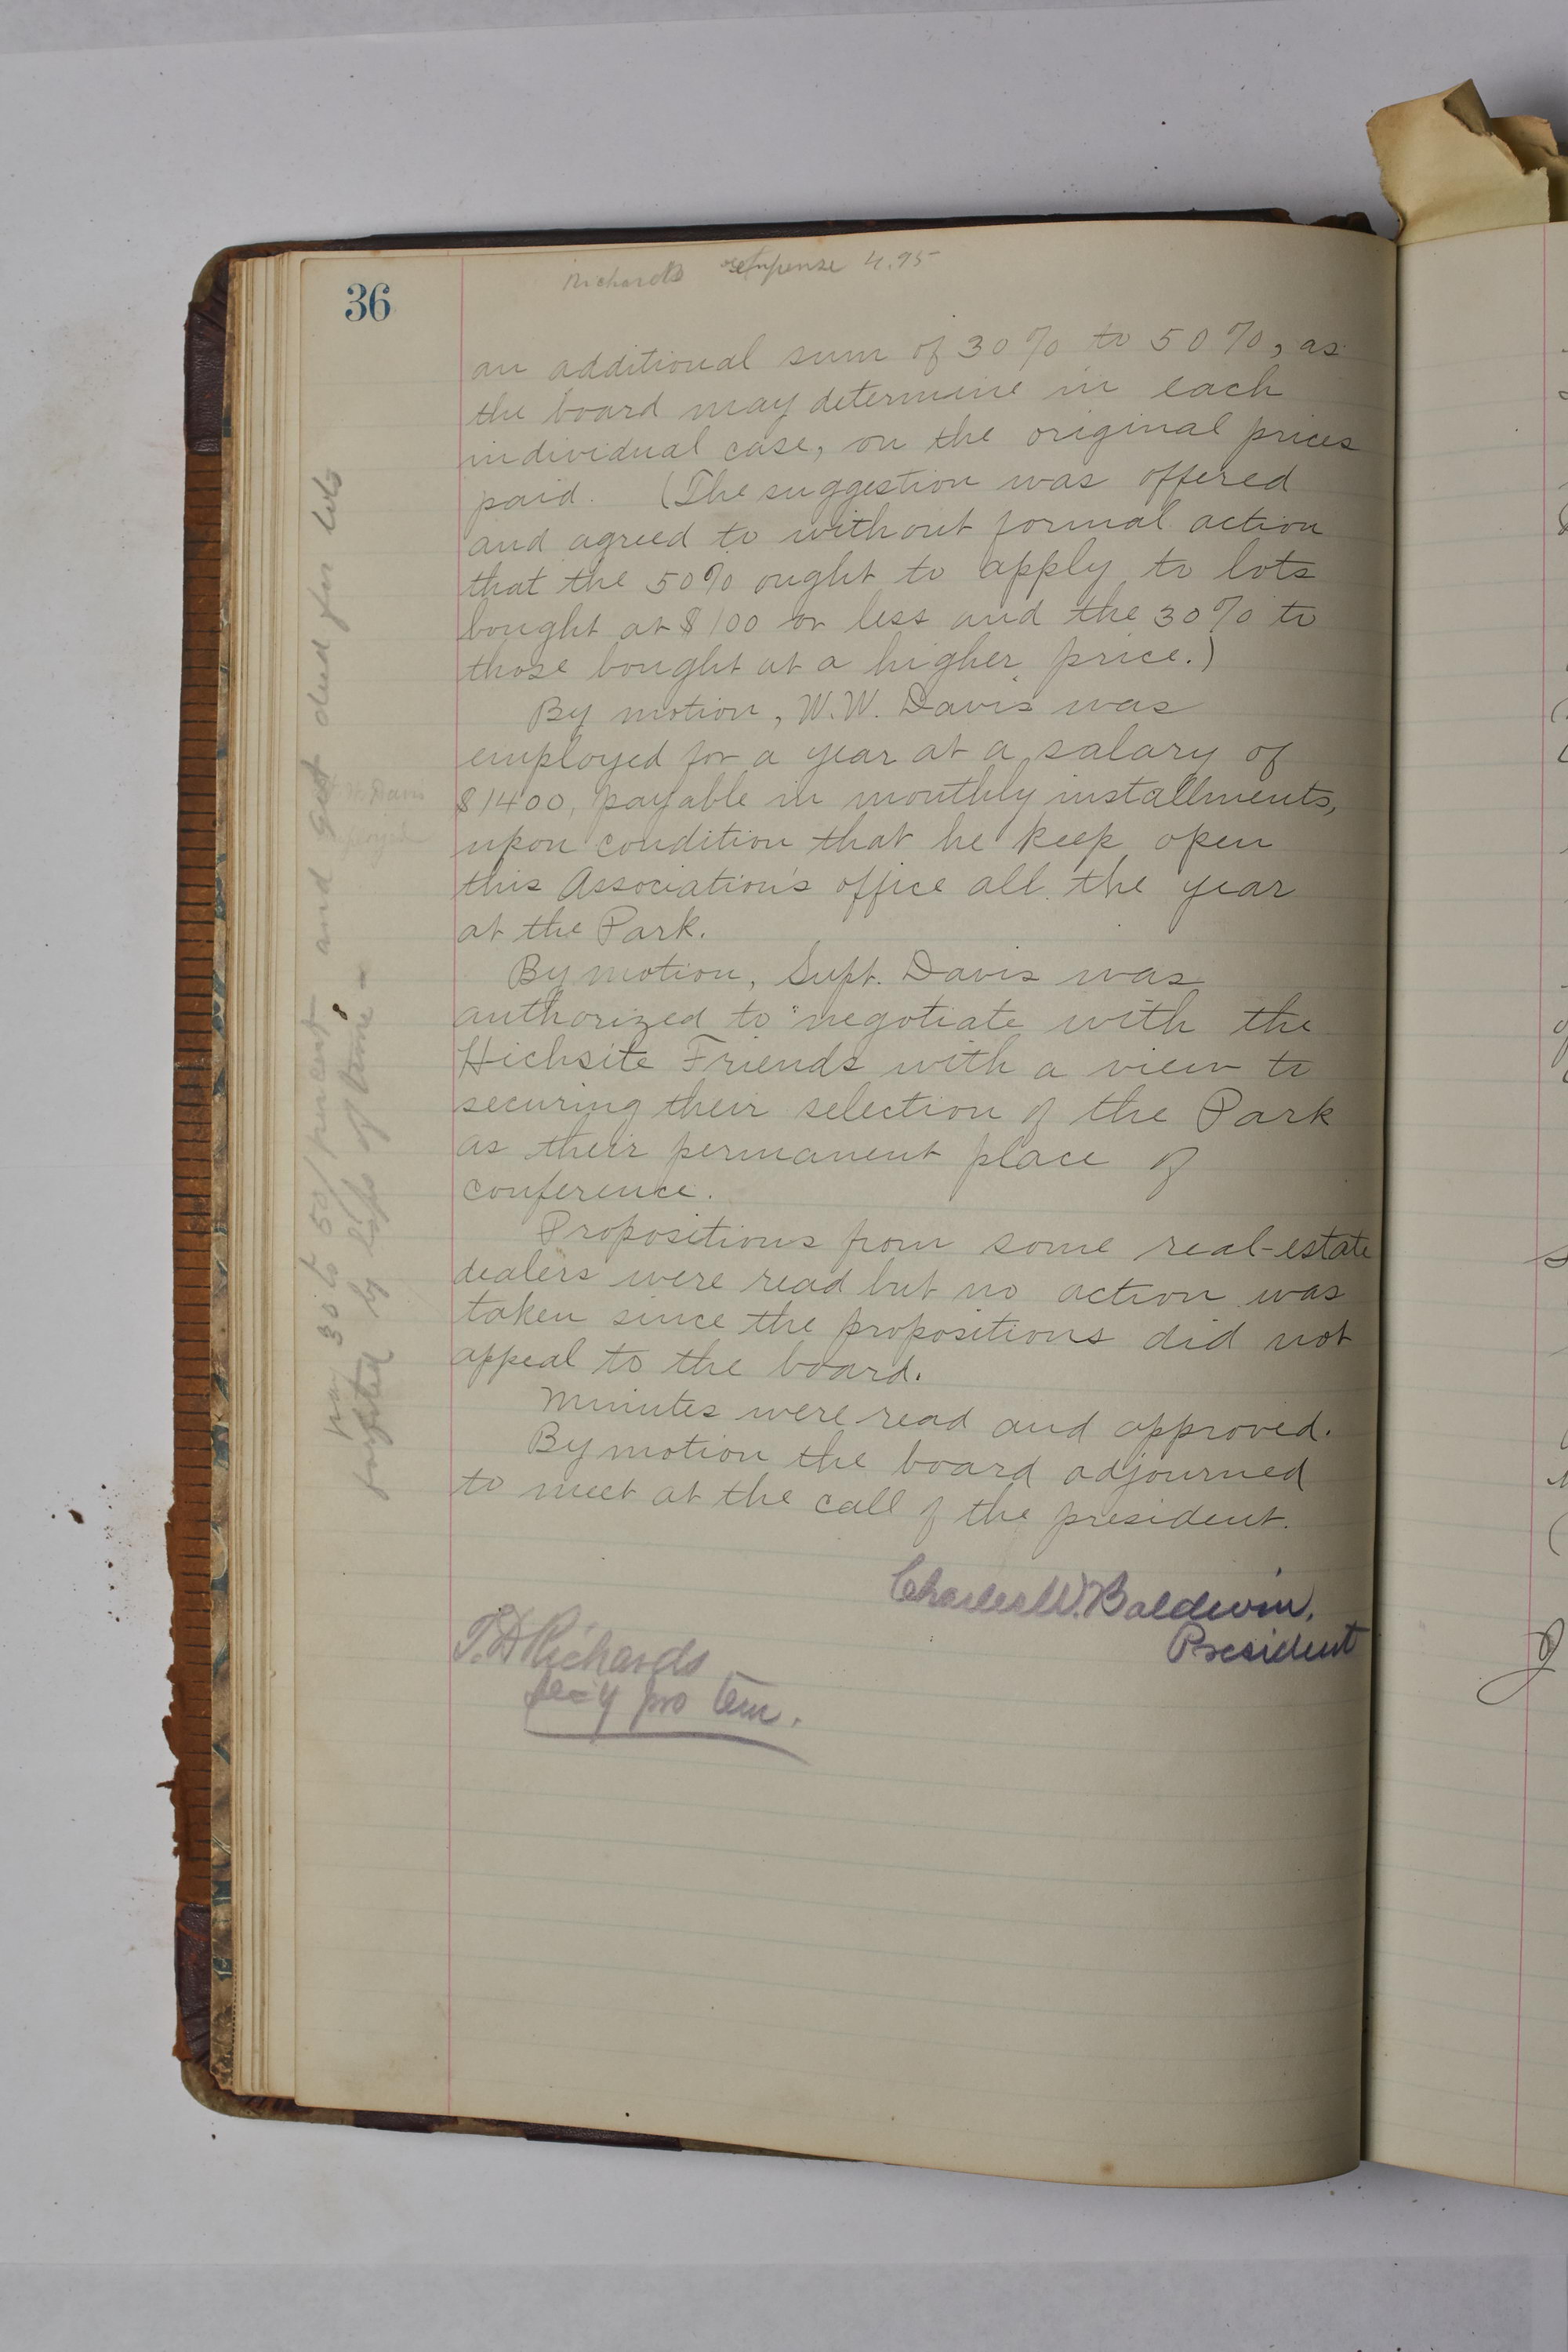 36
Richards expense 4.95
an additional sum of 30% to 50%, as
the board may determine in each
individual case, on the original prices
paid. (The suggestion was offered
and agreed to without formal action
that the 50% ought to apply to lots
bought at $100 or less and the 30% to
those bought at a higher price.)
By motion, W.W. Davis was
employed for a year at a salary of
$1400, payable in monthly installments,
upon condition that he keep open
this Association's office all the year
at the Park.
By motion, Supt. Davis was
authorized to negotiate with the
Hichsite Friends with a view to
securing their selection of the Park
as their permanent place of
conference.
Propositions from some real-estate
dealers were read but no action was
taken since the propositions did not
appeal to the board.
Minutes were read and approved.
By motion the board adjourned
to meet at the call of the president.
Charles W. Baldwin,
President
T.H Richards
Sec'y pro tem.
pay 30 to 50/ percent and get deed for lots
forfeited by laps of time -
W. Davis